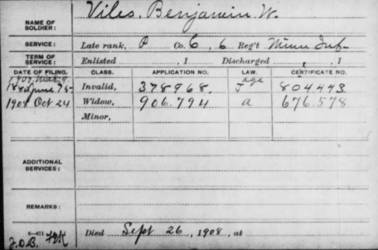 NAME OF SOLDIER: Viles, Benjamin W.
SERVICE: Late rank, P Co. C, 6 Reg't Minn Inf
TERM OF SERVICE: Enlisted , 1 Discharged , 1
DATE OF FILING. CLASS. APPLICATION NO. LAW. CERTIFICATE NO.
Invalid, 378968. J age 804443
1908 Oct 24 Widow, 906.794 a 676.578
Minor,
ADDITIONAL SERVICES:
REMARKS:
Died Sept 26, 1908, at
J.O.B.